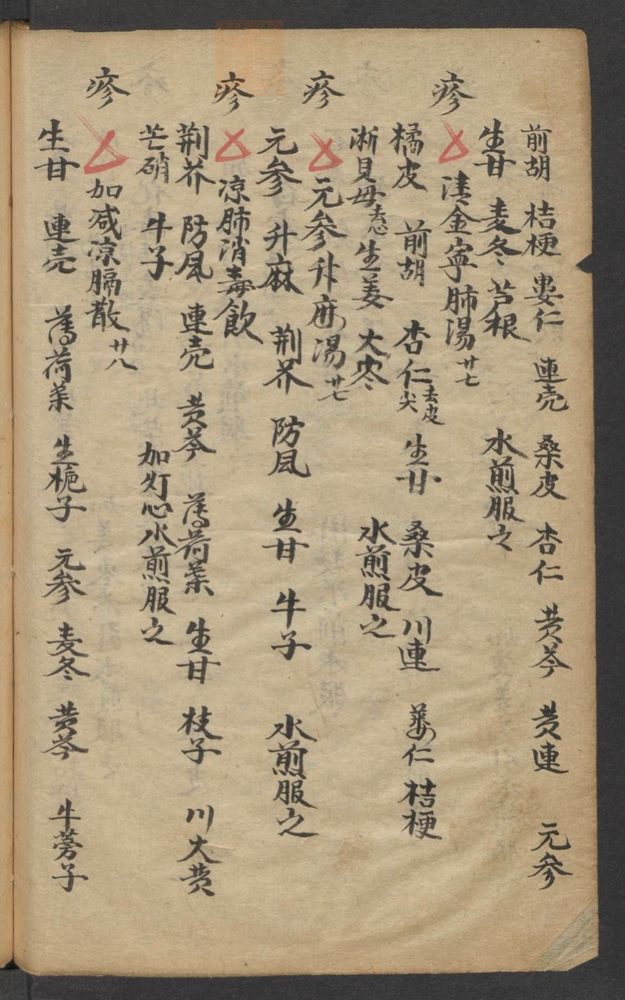 前胡 桔梗 婁仁 連壳 桑皮 杏仁 黄芩 黄連 元參
生甘 麦冬 芦根 水煎服之
疹 清金寧肺湯 廿七
橘皮 前胡 杏仁 去皮尖 生甘 桑皮 川連 蒌仁 桔梗
淅貝母 去心 生姜 大枣 水煎服之
疹 元參升麻湯 廿七
元參 升麻 荆芥 防风 生甘 牛子 水煎服之
疹 凉肺消毒飲
荆芥 防风 連壳 黄芩 薄荷葉 生甘 枝子 川大黄
芒硝 牛子 加灯心水煎服之
疹 加减凉膈散 廿八
生甘 連壳 薄荷葉 生栀子 元參 麦冬 黄芩 牛蒡子